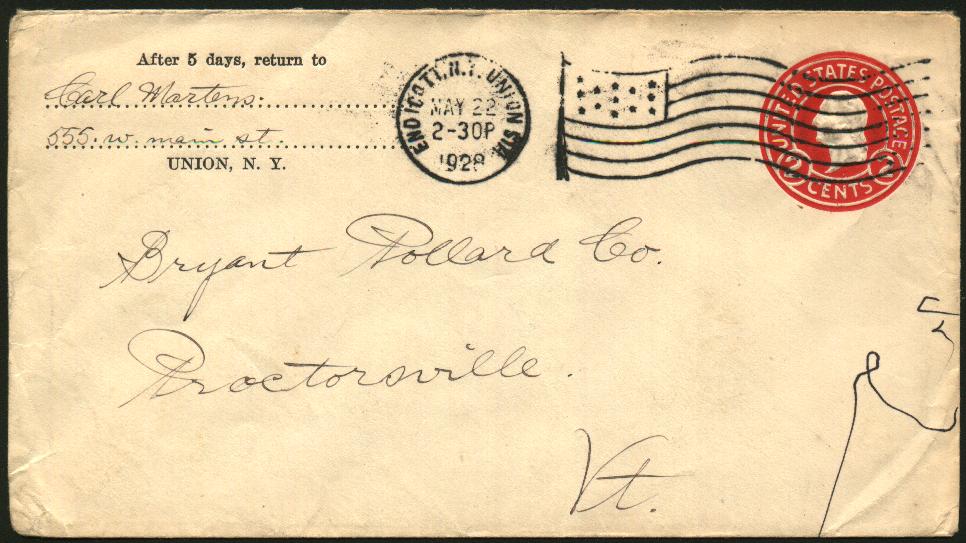 After 5 days, return to
Carl Martens
555 w. main st.
UNION, N. Y.
ENDICOTT, N.Y. UNION STA.
MAY 22
2-30P
1928
UNITED STATES POSTAGE
2 CENTS 2
Bryant Pollard Co.
Proctorsville.
Vt.